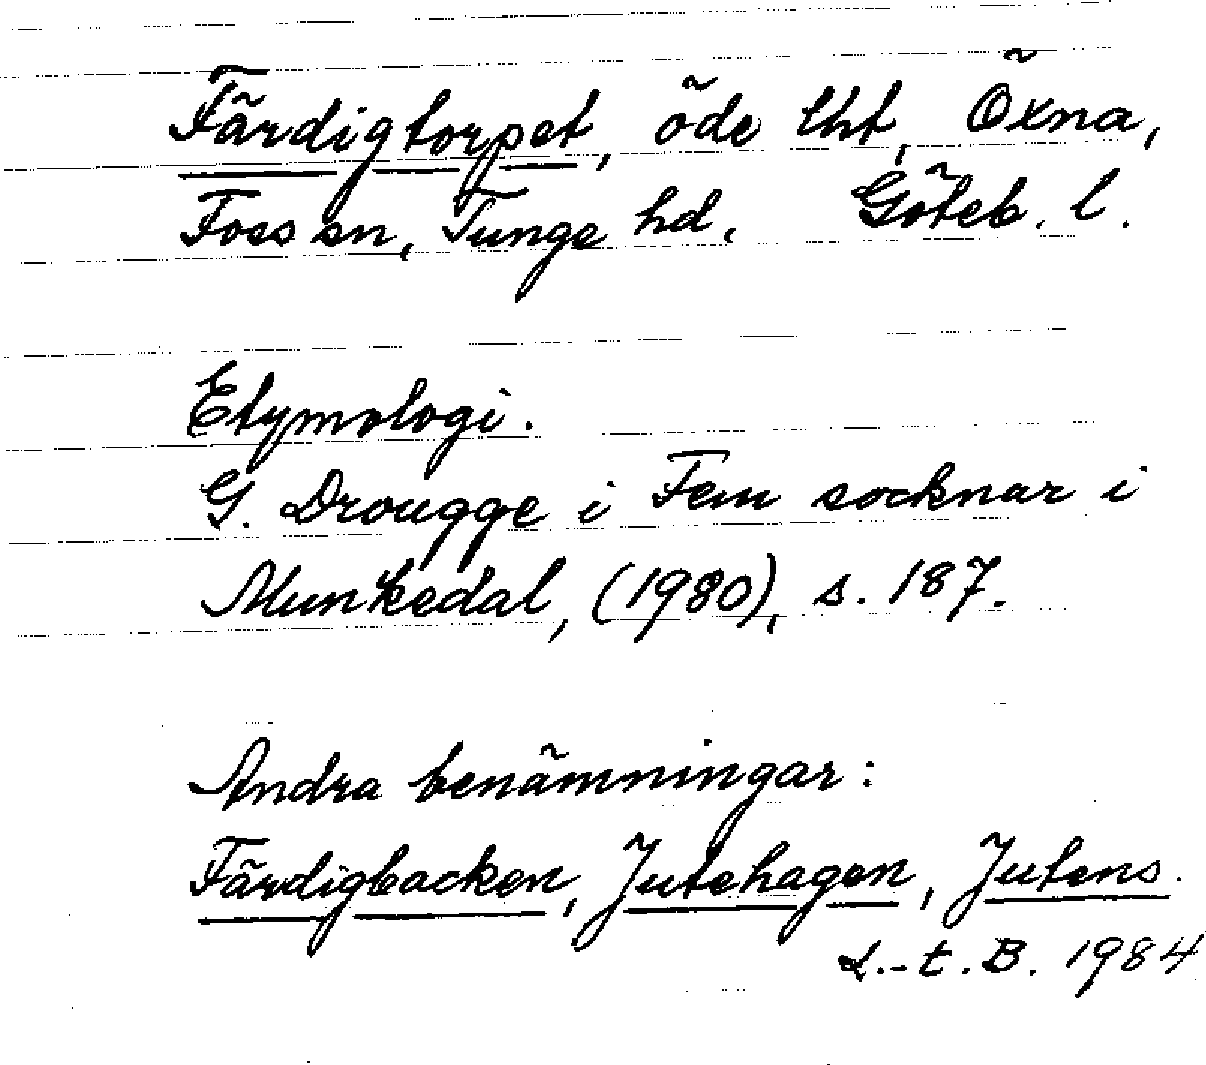 Färdigtorpet, öde lht, Öxna,
Foss sn, Tunge hd. Göteb. l.
Etymologi.
G. Drougge i Fem socknar i
Munkedal, (1980), s. 187.
Andra benämningar:
Färdigbacken, Jutehagen, Jutens.
L.-t. B. 1984